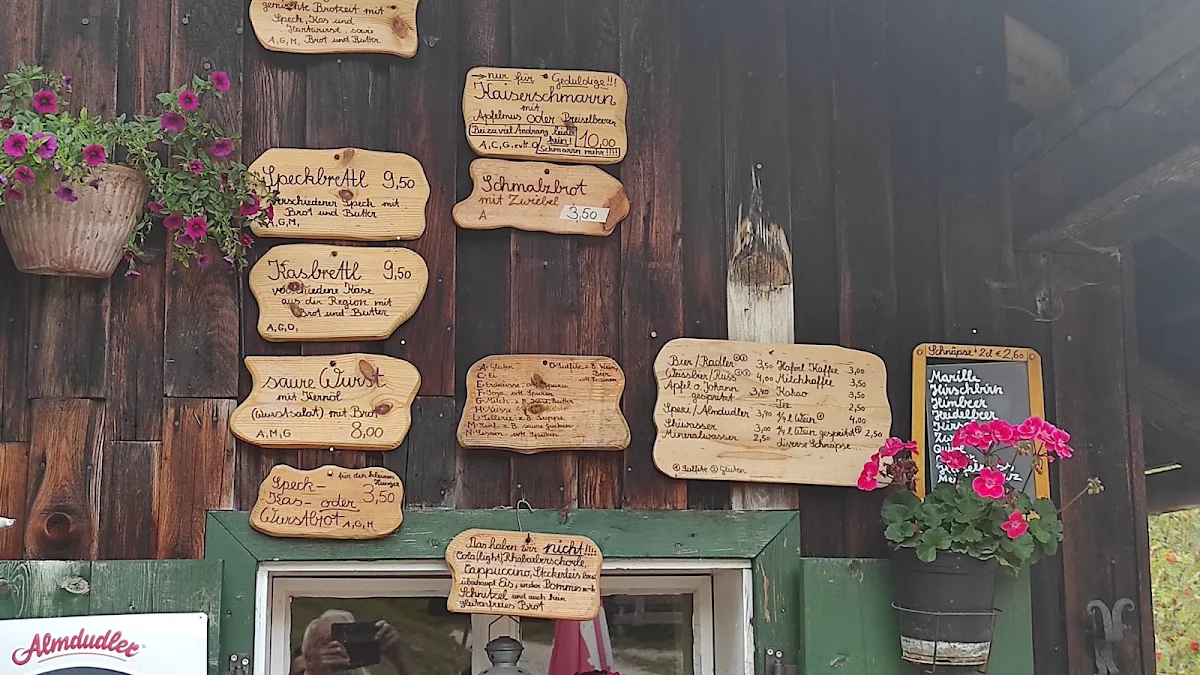 gemischte Brotzeit mit
Speck, Kas und
Hartwurst, saure
A, G, M, Brot und Butter
Speckbrettl 9,50
verschiedener Speck mit
Brot und Butter
A, G, M,
Kasbrettl 9,50
verschiedene Käse
aus der Region mit
Brot und Butter
A, G, O,
saure Wurst
mit Kernöl
(Wurstsalat) mit Brot
A, M, G 8,00
für den kleinen
Hunger
Speck-
Kas- oder 3,50
Wurstbrot A, G, M
→ nur für Geduldige!!!
Kaiserschmarrn
mit
Apfelmus oder Preiselbeeren
Bei zu viel Andrang leider
kein! 10,00
A, C, G, evt. O Schmarrn mehr!!!!
Schmalzbrot
mit Zwiebel
A 3,50
A- Gluten
C- Ei
Das haben wir nicht!!!
Cola (light) Rhabarberschorle,
Cappuccino, Steckerleis bzw.
überhaupt Eis, weder Pommes noch
Schnitzel und auch kein
glutenfreies Brot
Bier/Radler 3,50
Weissbier/Russ 4,00
Apfel o. Johann 3,40
gespritzt
Spezi/Almdudler 3,40
Skiwasser 3,00
Mineralwasser 2,50
Haferl Kaffee 3,00
Milchkaffee 3,50
Kakao 3,50
Tee 2,50
1/4 l Wein 4,00
1/4 l Wein gespritzt 2,50
diverse Schnäpse...
Sulfite Gluten
Schnäpse 2cl € 2,60
Marille
Hirschbirn
Himbeer
Heidelbeer
Almdudler